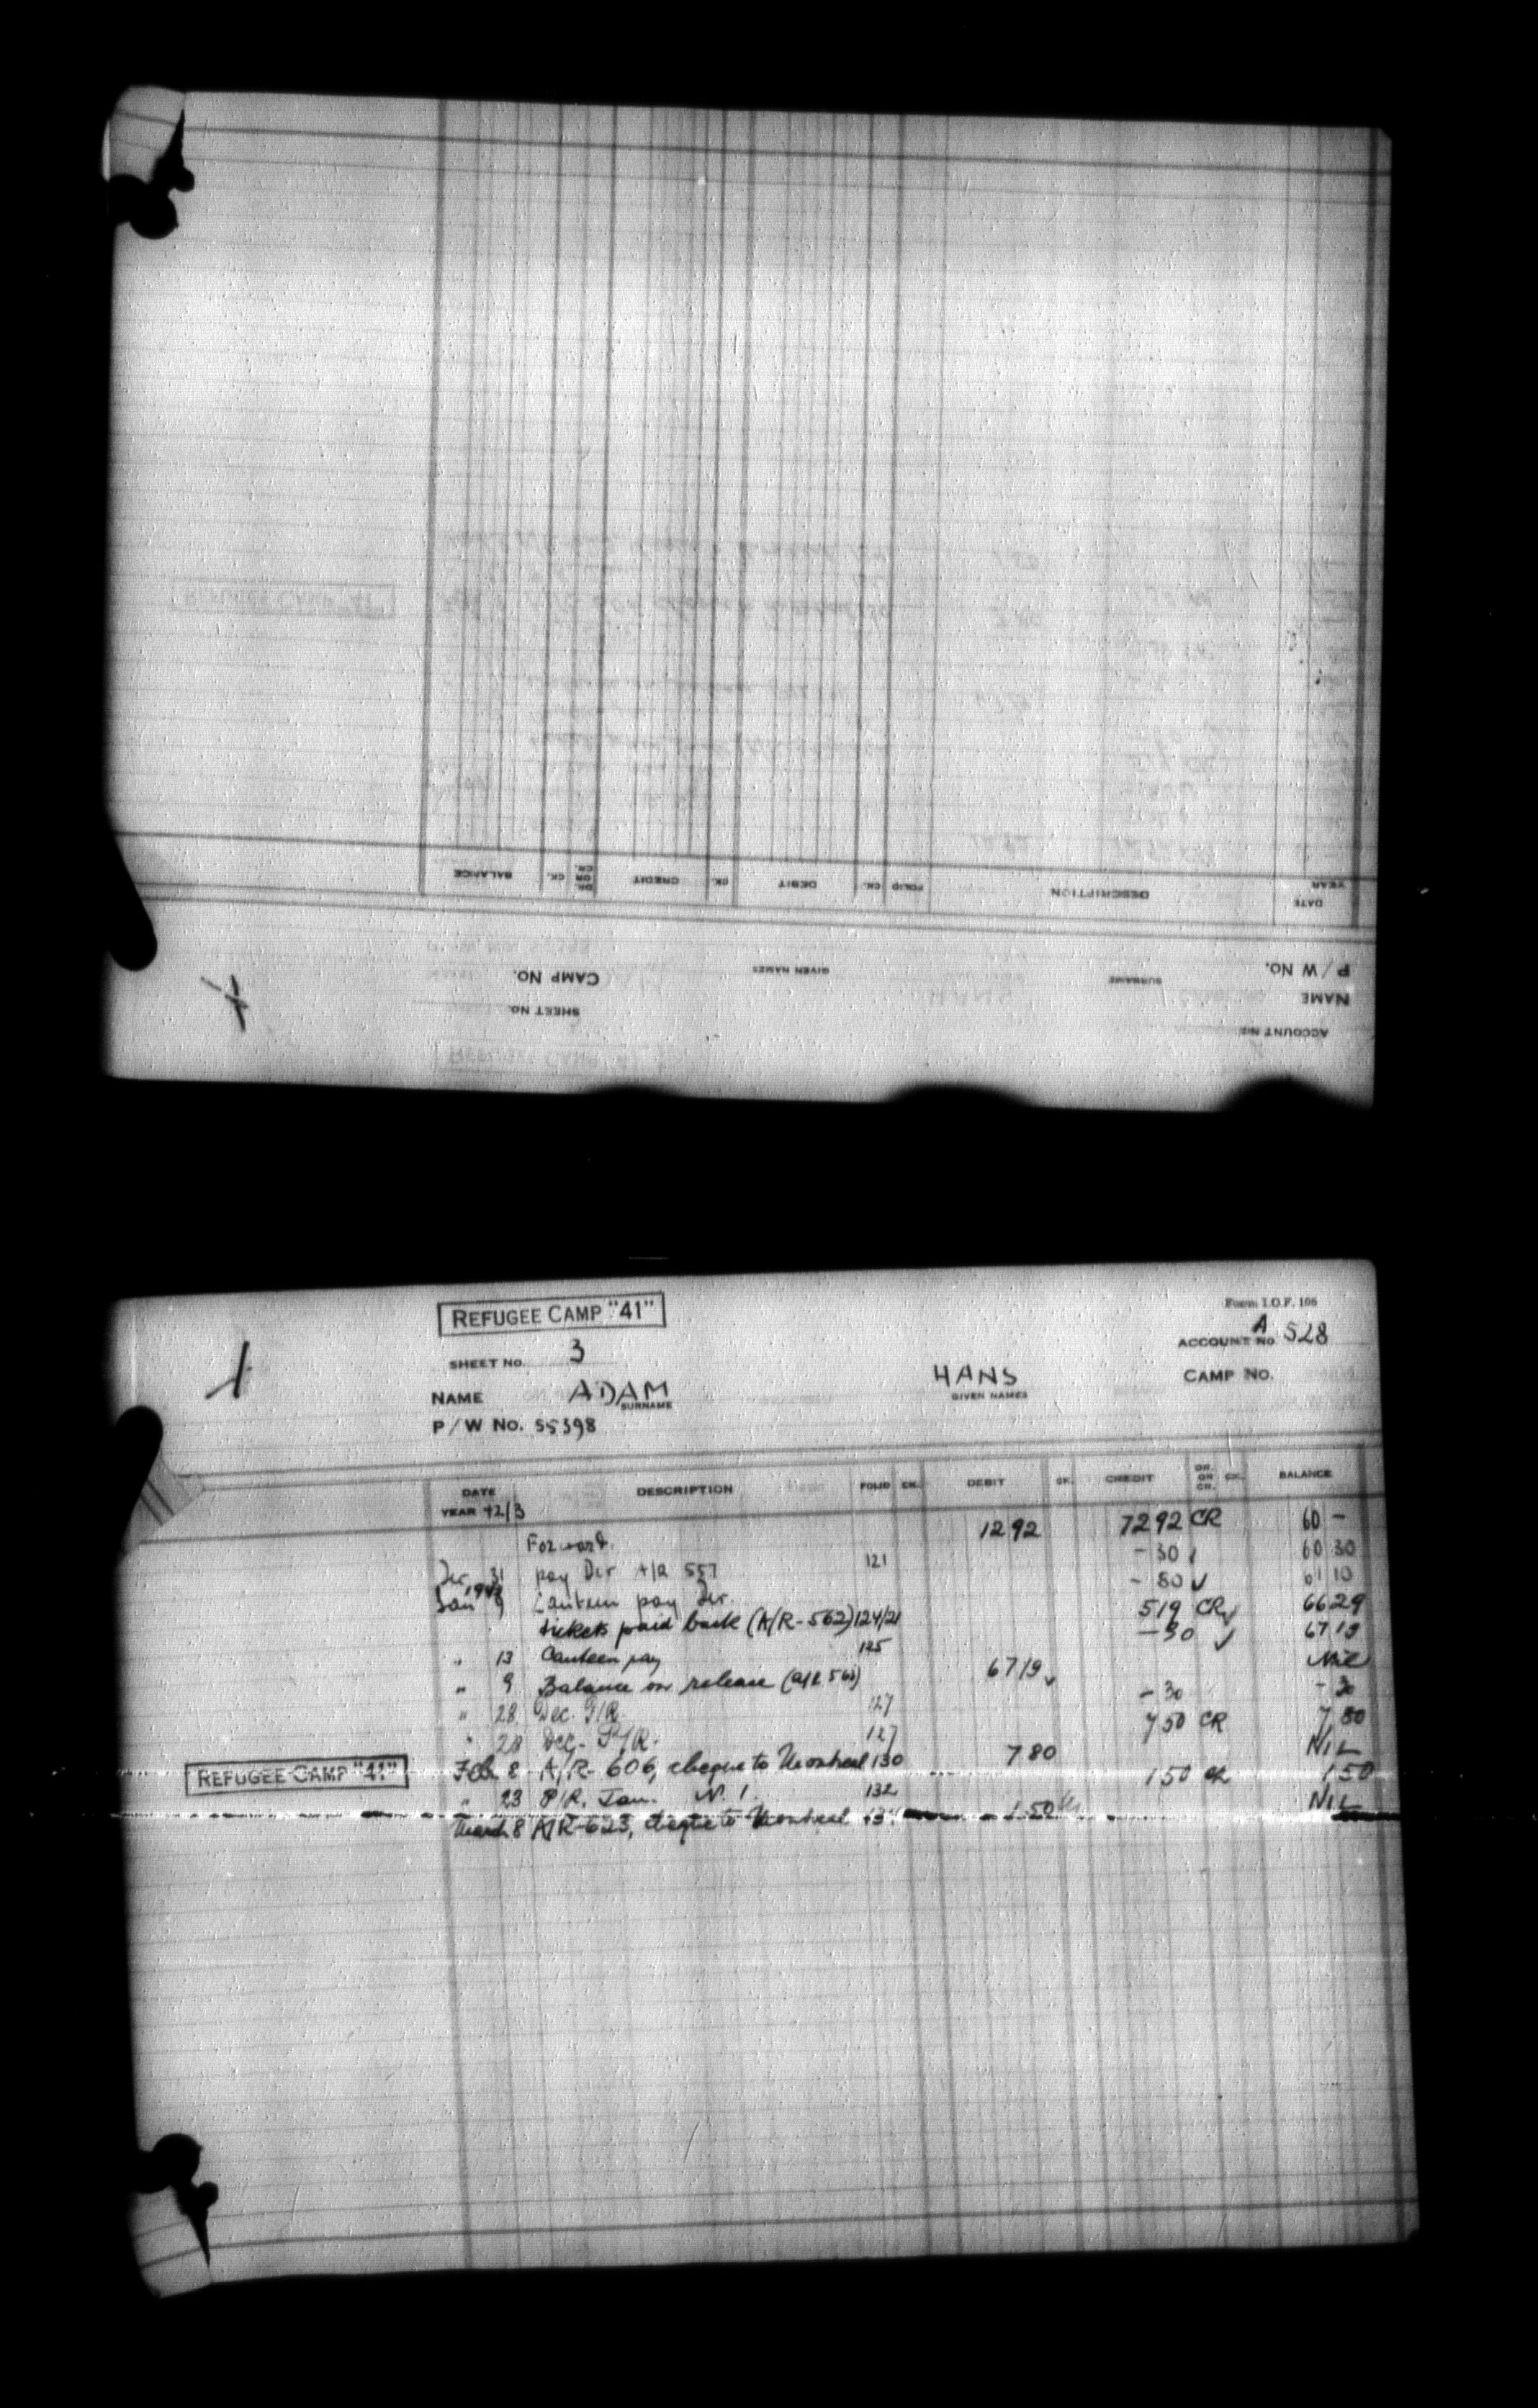 BALANCE CK. DR. OR CR. CREDIT CK. DEBIT CK. FOLIO DESCRIPTION DATE YEAR
P/W No. SURNAME GIVEN NAMES CAMP No.
NAME SHEET No.
ACCOUNT No.
REFUGEE CAMP "41" Form I.O.F. 106
SHEET No. 3 ACCOUNT No. A 528
NAME ADAM SURNAME HANS GIVEN NAMES CAMP No.
P/W No. 55398
DATE YEAR 42/3 DESCRIPTION FOLIO CK. DEBIT CK. CREDIT DR. OR CR. CK. BALANCE
Forward. 12 92 72 92 CR 60 -
Dec 31 pay Dec A/R 557 121 - 30 60 30
Jan 1943 9 Canteen pay Dec. - 80 61 10
tickets paid back (A/R-562) 124/21 5 19 CR 66 29
" 13 Canteen pay 125
" 9 Balance on release 67 19 Nil
" 28 Dec. P/R 127 - 30 - 30
" 28 Dec. P/R. 127 7 50 CR 7 80
REFUGEE CAMP "41" Feb 8 A/R-606, cheque to Montreal 130 7 80 NIL
" 23 P/R. Jan. N. 1. 132 1 50 CR 1 50
March 8 A/R-623, cheque to Montreal 1.50 NIL